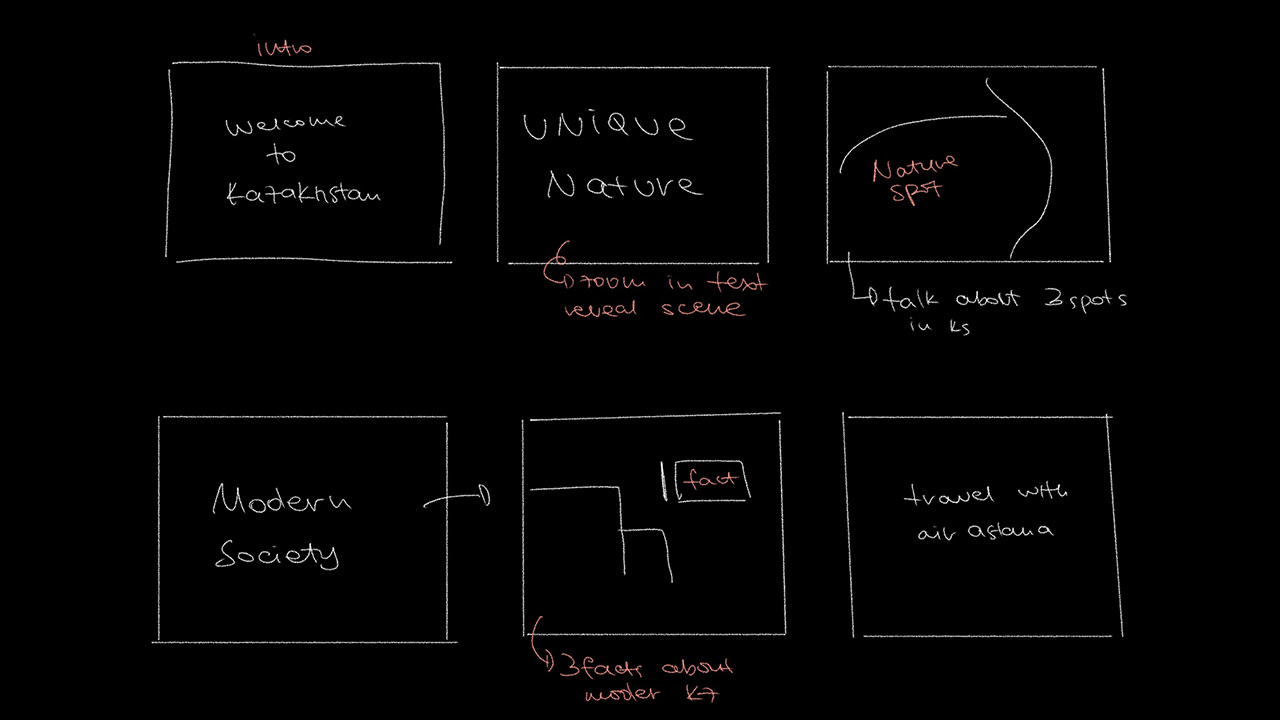 intro
Welcome
to
Kazakhstan
UNiQUE
NatUre
zoom in text
reveal scene
Nature
spot
talk about 3 spots
in KS
Modern
Society
fact
3 facts about
moder KZ
travel with
air astana